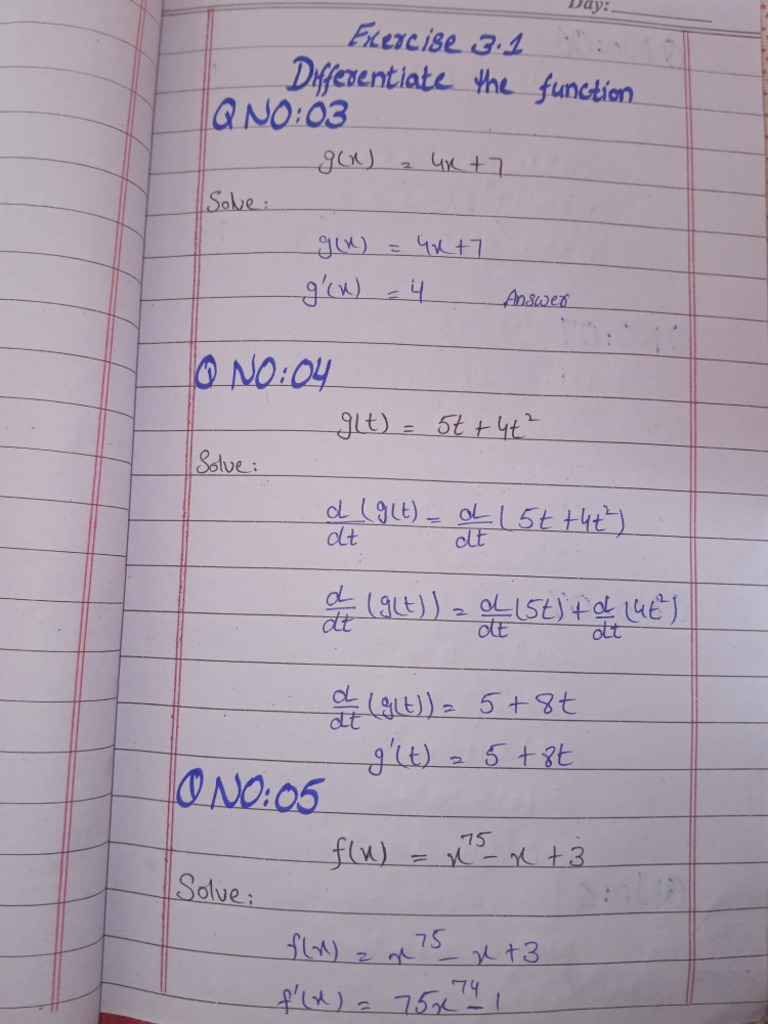 Day:
Exercise 3.1
Differentiate the function
Q NO:03
g(x) = 4x+7
Solve:
g(x) = 4x+7
g'(x) = 4 Answer
Q NO:04
g(t) = 5t + 4t²
Solve:
d/dt (g(t) = d/dt (5t + 4t²)
d/dt (g(t)) = d/dt (5t) + d/dt (4t²)
d/dt (g(t)) = 5 + 8t
g'(t) = 5 + 8t
Q NO:05
f(x) = x⁷⁵ - x + 3
Solve:
f(x) = x⁷⁵ - x + 3
f'(x) = 75x⁷⁴ - 1